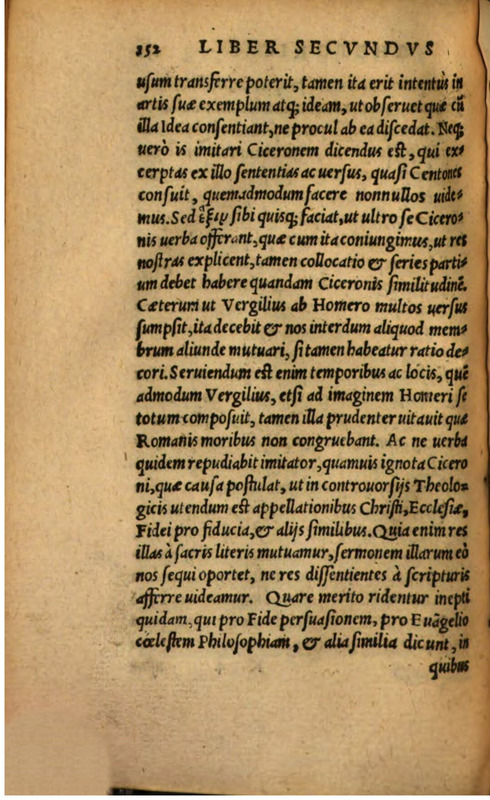 352 LIBER SECVNDVS
usum transferre poterit, tamen ita erit intentus in
artis suæ exemplum atq; ideam, ut obseruet quæ cũ
illa Idea consentiant, ne procul ab ea discedat. Neq;
uerò is imitari Ciceronem dicendus est, qui ex=
cerptas ex illo sententias ac uersus, quasi Centones
consuit, quemadmodum facere nonnullos uide=
mus. Sed ἕξιν sibi quisq; faciat, ut ultro se Cicero=
nis uerba offerant, quæ cum ita coniungimus, ut res
nostras explicent, tamen collocatio & series parti=
um debet habere quandam Ciceronis similitudinẽ.
Cæterum ut Vergilius ab Homero multos uersus
sumpsit, ita decebit & nos interdum aliquod mem=
brum aliunde mutuari, si tamen habeatur ratio de=
cori. Seruiendum est enim temporibus ac locis, quẽ
admodum Vergilius, etsi ad imaginem Homeri se
totum composuit, tamen illa prudenter uitauit quæ
Romanis moribus non congruebant. Ac ne uerba
quidem repudiabit imitator, quamuis ignota Cicero
ni, quæ causa postulat, ut in controuorsijs Theolo=
gicis utendum est appellationibus Christi, Ecclesiæ,
Fidei pro fiducia, & alijs similibus. Quia enim res
illas à sacris literis mutuamur, sermonem illarum eò
nos sequi oportet, ne res dissentientes à scripturis
afferre uideamur. Quare merito ridentur inepti
quidam, qui pro Fide persuasionem, pro Euãgelio
cœlestem Philosophiam, & alia similia dicunt, in
quibus